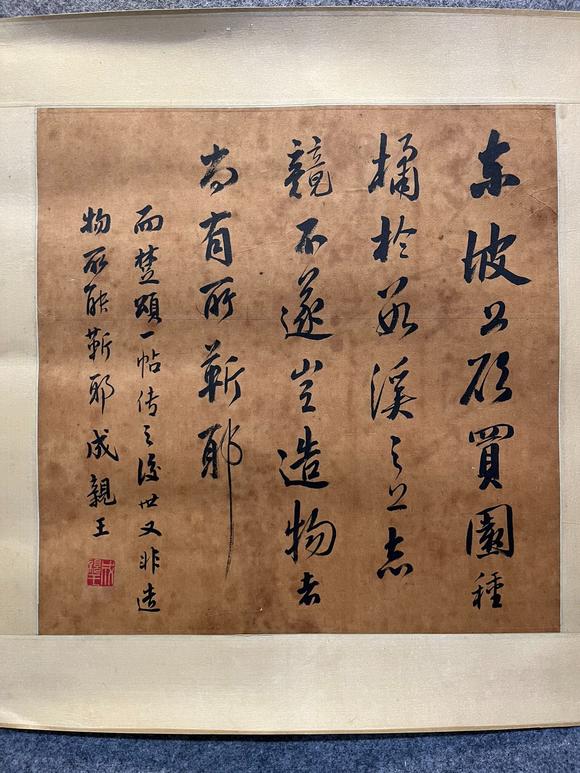 東坡公欲買園種
橘於荊溪之上志
競不遂豈造物者
尚有所靳耶
而楚頌一帖传之後世又非造
物所能靳耶成親王
成親王